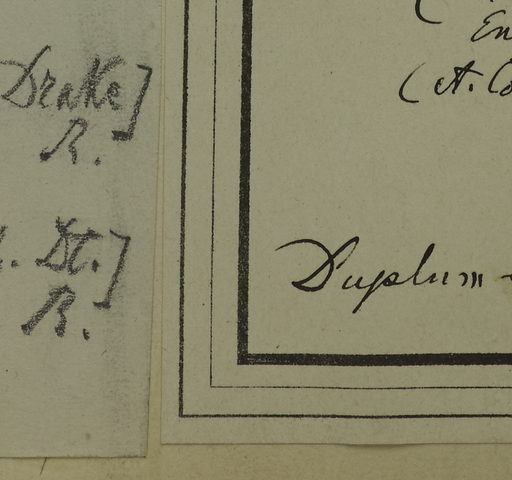 Drake]
R.
. Dt.]
R.
(
En
(A. Co
Duplum -